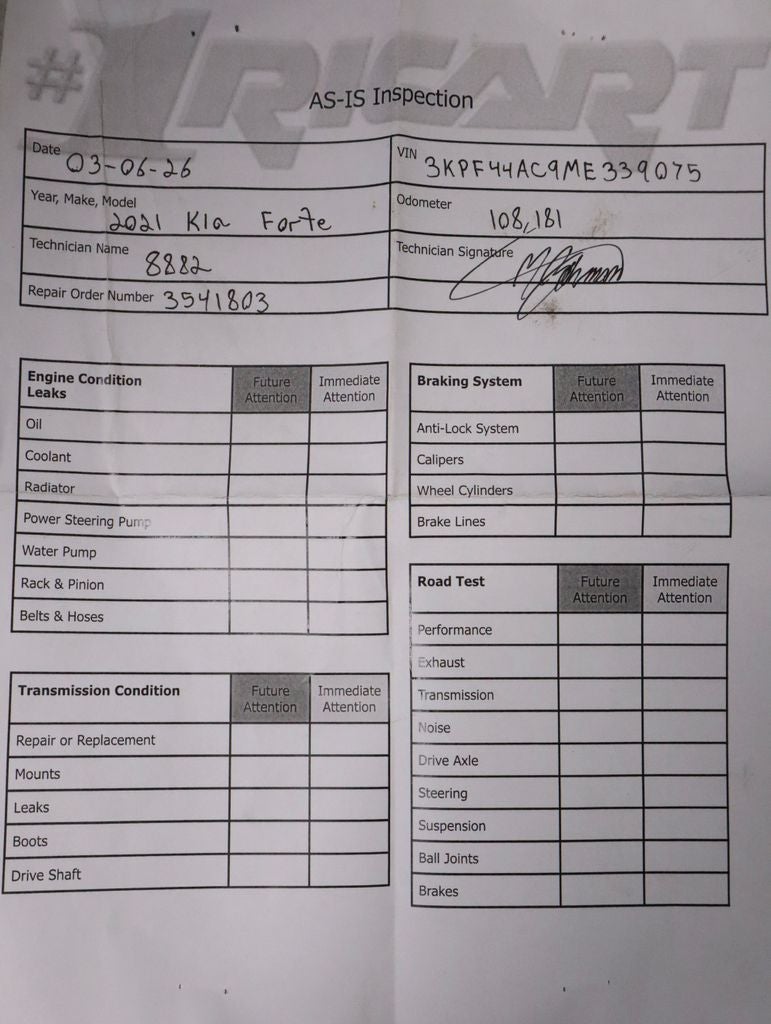 #1 RICART
AS-IS Inspection
Date 03-06-26
VIN 3KPF44AC9ME339075
Year, Make, Model 2021 Kia Forte
Odometer 108,181
Technician Name 8882
Technician Signature
Repair Order Number 3541803
Engine Condition Leaks Future Attention Immediate Attention
Oil
Coolant
Radiator
Power Steering Pump
Water Pump
Rack & Pinion
Belts & Hoses
Transmission Condition Future Attention Immediate Attention
Repair or Replacement
Mounts
Leaks
Boots
Drive Shaft
Braking System Future Attention Immediate Attention
Anti-Lock System
Calipers
Wheel Cylinders
Brake Lines
Road Test Future Attention Immediate Attention
Performance
Exhaust
Transmission
Noise
Drive Axle
Steering
Suspension
Ball Joints
Brakes